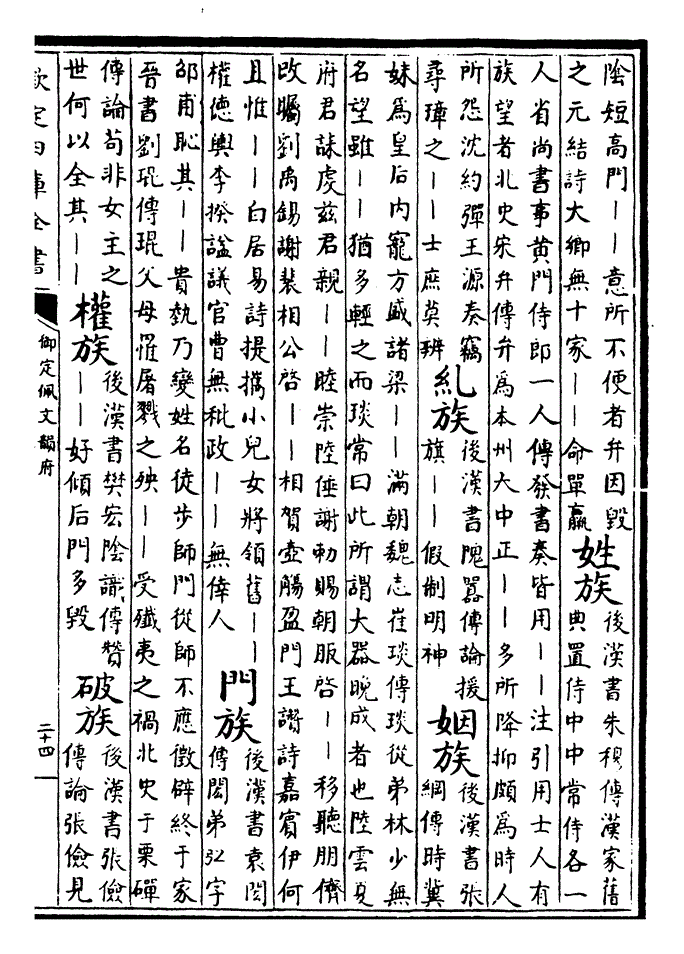 陰短高門丨丨意所不便者弁因毀
之元結詩大卿無十家丨丨命單羸
姓族
後漢書朱穆傳漢家舊
典置侍中中常侍各一
人省尚書事黃門侍郎一人傳發書奏皆用丨丨注引用士人有
族望者北史宋弁傳弁為本州大中正丨丨多所降抑頗為時人
所怨沈約彈王源奏竊
尋璋之丨丨士庶莫辨
糺族
後漢書隗囂傳論援
旗丨丨假制明神
姻族
後漢書張
綱傳時冀
妹為皇后内寵方盛諸梁丨丨滿朝魏志崔琰傳琰從弟林少無
名望雖丨丨猶多輕之而琰常曰此所謂大器晚成者也陸雲夏
府君誄虔茲君親丨丨睦崇陸倕謝勅賜朝服啓丨丨移聽朋儕
改矚劉禹錫謝裴相公啓丨丨相賀壺觴盈門王讚詩嘉賓伊何
且惟丨丨白居易詩提攜小兒女將領舊丨丨
權德輿李揆諡議官曹無秕政丨丨無倖人
門族
後漢書袁閎
傳閎弟弘字
邵甫恥其丨丨貴埶乃變姓名徒步師門從師不應徵辟終于家
晉書劉琨傳琨父母罹屠戮之殃丨丨受殲夷之禍北史于栗磾
傳論苟非女主之
世何以全其丨丨
權族
後漢書樊宏陰識傳贊
丨丨好傾后門多毀
破族
後漢書張儉
傳論張儉見
欽定四庫全書
御定佩文韻府
二十四